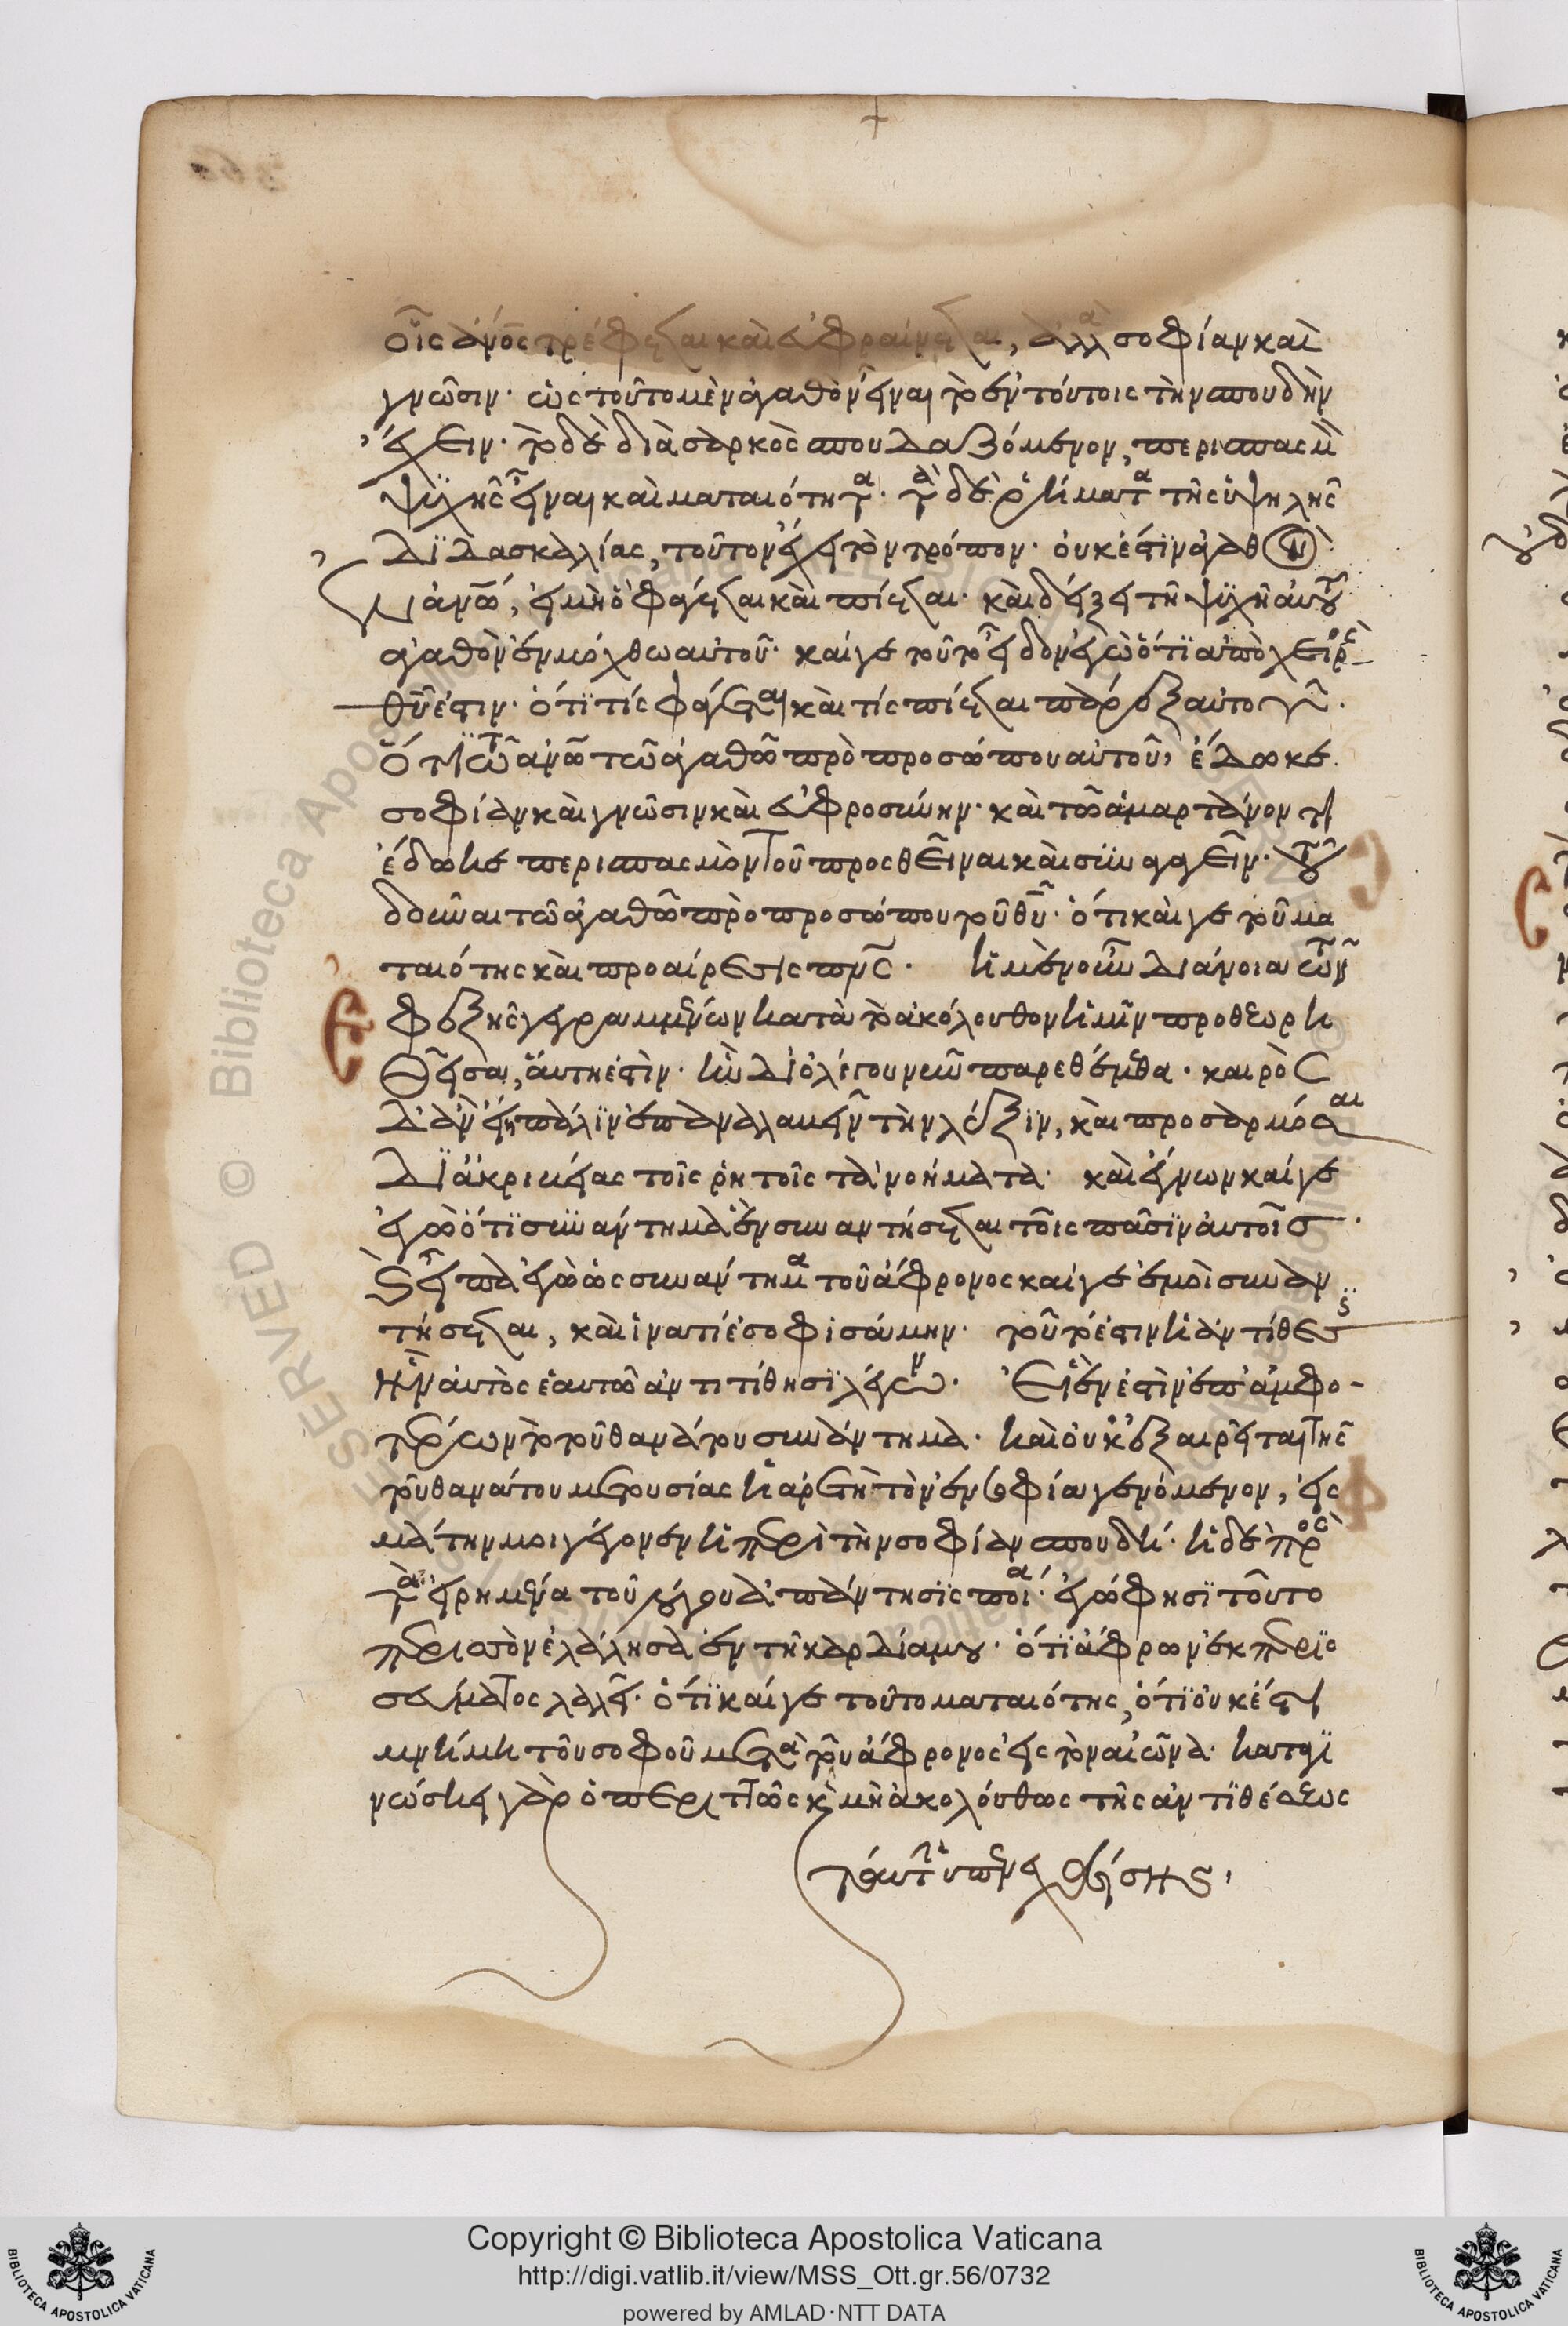 +
οἷς ἄνος τρέφεται καὶ εὐφραίνεται, ἀλλὰ σοφίαν καὶ
γνῶσιν· ὡς τοῦτο μὲν ἀγαθὸν εἶναι τὸ ἐν τούτοις τὴν σπουδὴν
ἔχειν· τὸ δὲ διὰ σαρκὸς σπουδαζόμενον, περισπασμὸν
ψυχῆς εἶναι καὶ ματαιότητα· τὰ δὲ ῥήματα τῆς ὑψηλῆς
διδασκαλίας, τοῦτον ἔχει τὸν τρόπον· οὐκ ἔστιν ἀγαθὸν
ἀνω, εἰ μὴ ὃ φάγεται καὶ πίεται· καὶ δείξει τῇ ψυχῇ αὐτοῦ
ἀγαθὸν ἐν μόχθω αὐτοῦ· καί γε τοῦτο εἶδον ἐγὼ ὅτι ἀπὸ χειρός
θυ ἐστιν· ὅτι τίς φάγεται καὶ τίς πίεται πάρεξ αὐτοῦ·
ὅτι τῶ ἀνω τῶ ἀγαθῶ πρὸ προσώπου αὐτοῦ, ἔδωκε
σοφίαν καὶ γνῶσιν καὶ εὐφροσύνην· καὶ τῶ ἁμαρτάνοντι
ἔδωκε περισπασμὸν τοῦ προσθεῖναι καὶ συναγαγεῖν· τοῦ
δοῦναι τῶ ἀγαθῶ πρὸ προσώπου τοῦ θυ· ὅτι καί γε τοῦτο μα
ταιότης καὶ προαίρεσις πνς· ἡ μὲν οὖν διάνοια τῶν
ἐφεξῆς γεγραμμένων κατὰ τὸ ἀκόλουθον ἡμῖν προθεωρη
θεῖσα, αὕτη ἐστίν· ἣν δι' ὀλίγου νῦν παρεθέμεθα· καιρὸς
δ' ἂν εἴη πάλιν ἐπαναλαβεῖν τὴν λέξιν, καὶ προσαρμόσαι
δι' ἀκριβείας τοῖς ῥητοῖς τὰ νοήματα· καὶ ἔγνων καί γε
ἐγὼ ὅτι συνάντημα ἓν συναντήσεται τοῖς πᾶσιν αὐτοῖς·
καὶ εἶπα ἐγὼ ὡς συνάντημα τοῦ ἄφρονος καί γε ἐμοὶ συναν
τήσεται, καὶ ἱνατί ἐσοφισάμην· τοῦτό ἐστιν ἡ ἀντίθεσις
ἣν αὐτὸς ἑαυτῶ ἀντιτίθησι λέγων· εἰ ἕν ἐστιν ἐπ' ἀμφο-
τέρων τὸ τοῦ θανάτου συνάντημα· καὶ οὐκ ἐξαιρεῖται τῆς
τοῦ θανάτου μετουσίας ἡ ἀρετὴ τὸν ἐν σοφία γενόμενον, εἰς
μάτην μοι γέγονεν ἡ περὶ τὴν σοφίαν σπουδή· ἡ δὲ πρὸς
τὰ εἰρημένα τοῦ λόγου ἀπάντησις ποία· ἐγὼ φησὶ τοῦτο
περισσὸν ἐλάλησα ἐν τῇ καρδία μου· ὅτι ἄφρων ἐκ περισ
σεύματος λαλεῖ· ὅτι καί γε τοῦτο ματαιότης, ὅτι οὐκ ἔστι
μνήμη τοῦ σοφοῦ μετὰ τοῦ ἄφρονος εἰς τὸν αἰῶνα· καταγι
νώσκει γὰρ ὁ περιττῶς καὶ μὴ ἀκολούθως τῆς ἀντιθέσεως